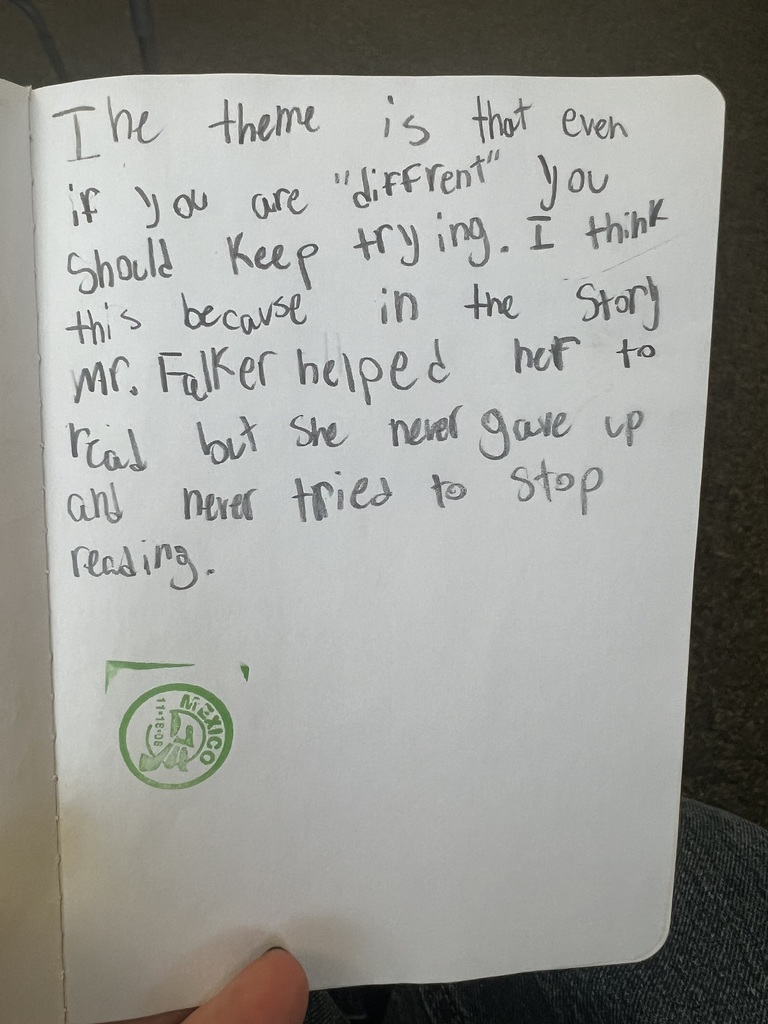 The theme is that even
if you are "diffrent" you
should keep trying. I think
this because in the story
mr. Falker helped her to
read but she never gave up
and never tried to stop
reading.
MEXICO
11·18·08